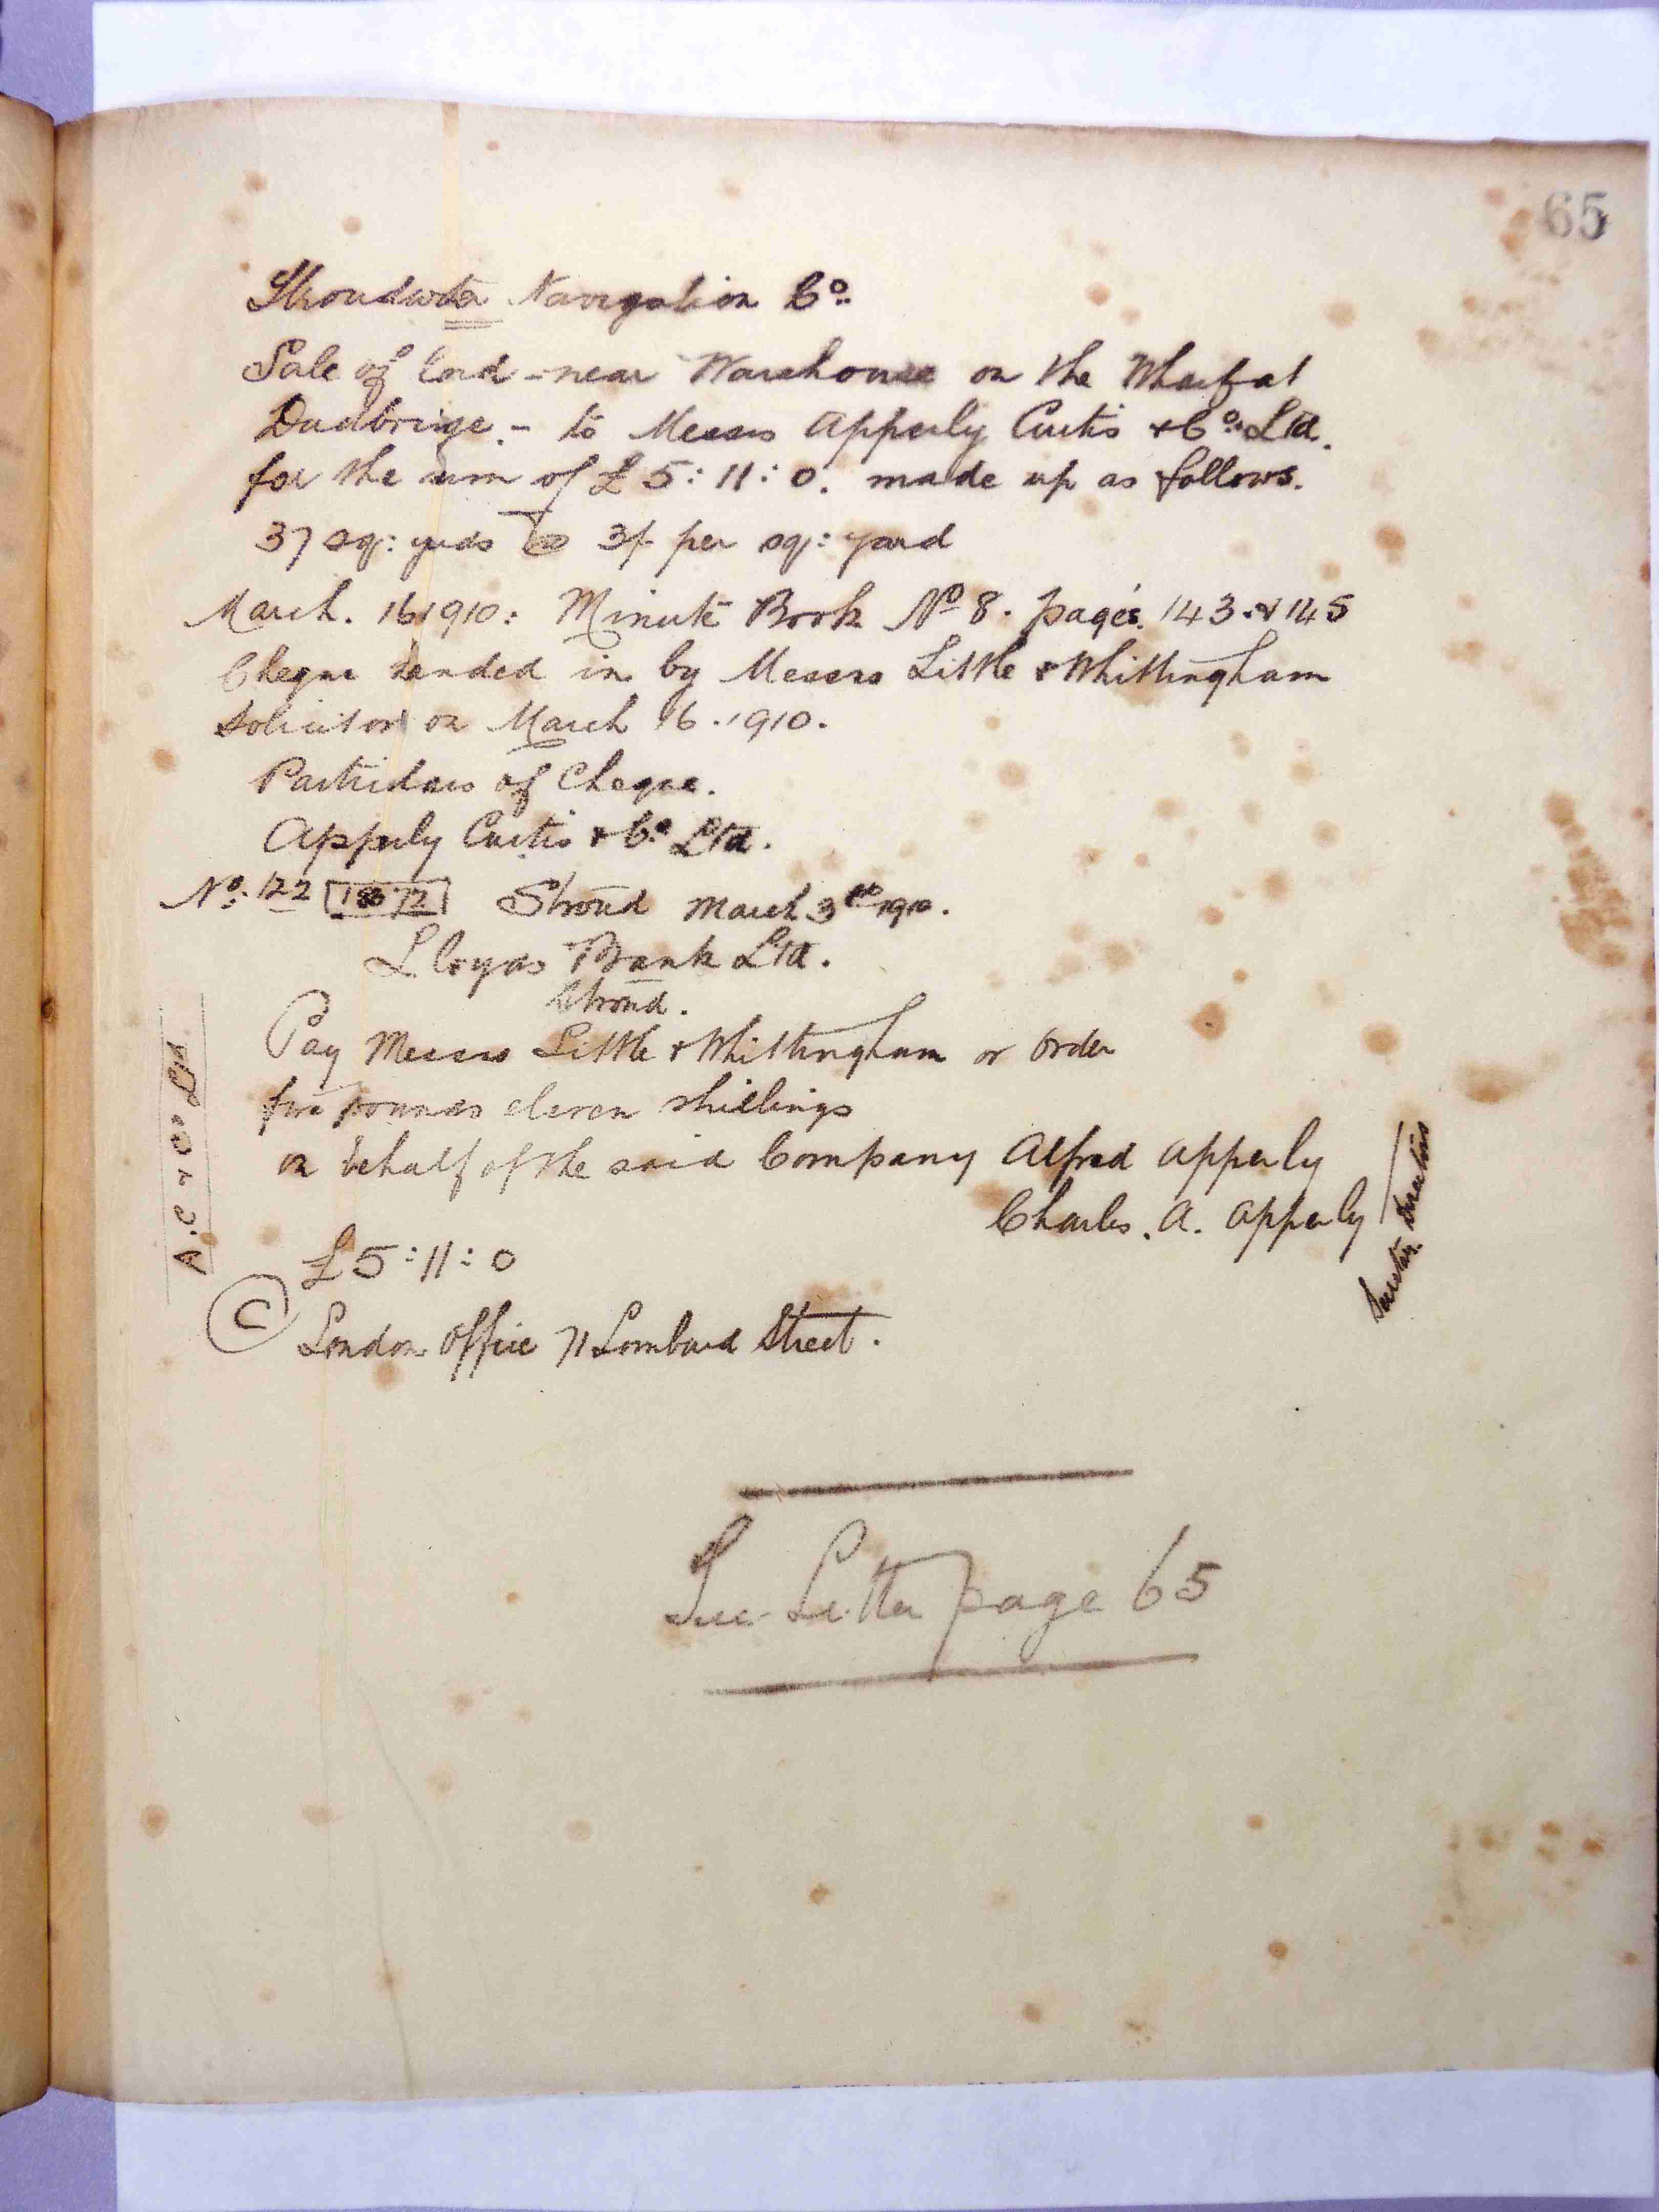 65
Stroudwater Navigation Co.
Sale of land - near Warehouse on the Wharf at
Dudbridge. - to Messrs Apperly Curtis & Co. Ltd.
for the sum of £5:11:0. made up as follows.
37 sq: yards @ 3/- per sq: yard
March. 16 1910: Minute Book No 8. pages. 143. & 145
Cheque handed in by Messrs Little & Whittingham
Solicitors on March 16. 1910.
Particulars of Cheque.
Apperly Curtis & Co Ltd.
No: 122 Stroud March 3rd 1910.
Lloyds Bank Ltd.
Stroud.
Pay Messrs Little & Whittingham or order
five pounds eleven shillings
on behalf of the said Company Alfred Apperly
Charles. A. Apperly
Directors
A.C & Co Ltd
£5:11:0
C
London Office 71 Lombard Street.
See Letter page 65